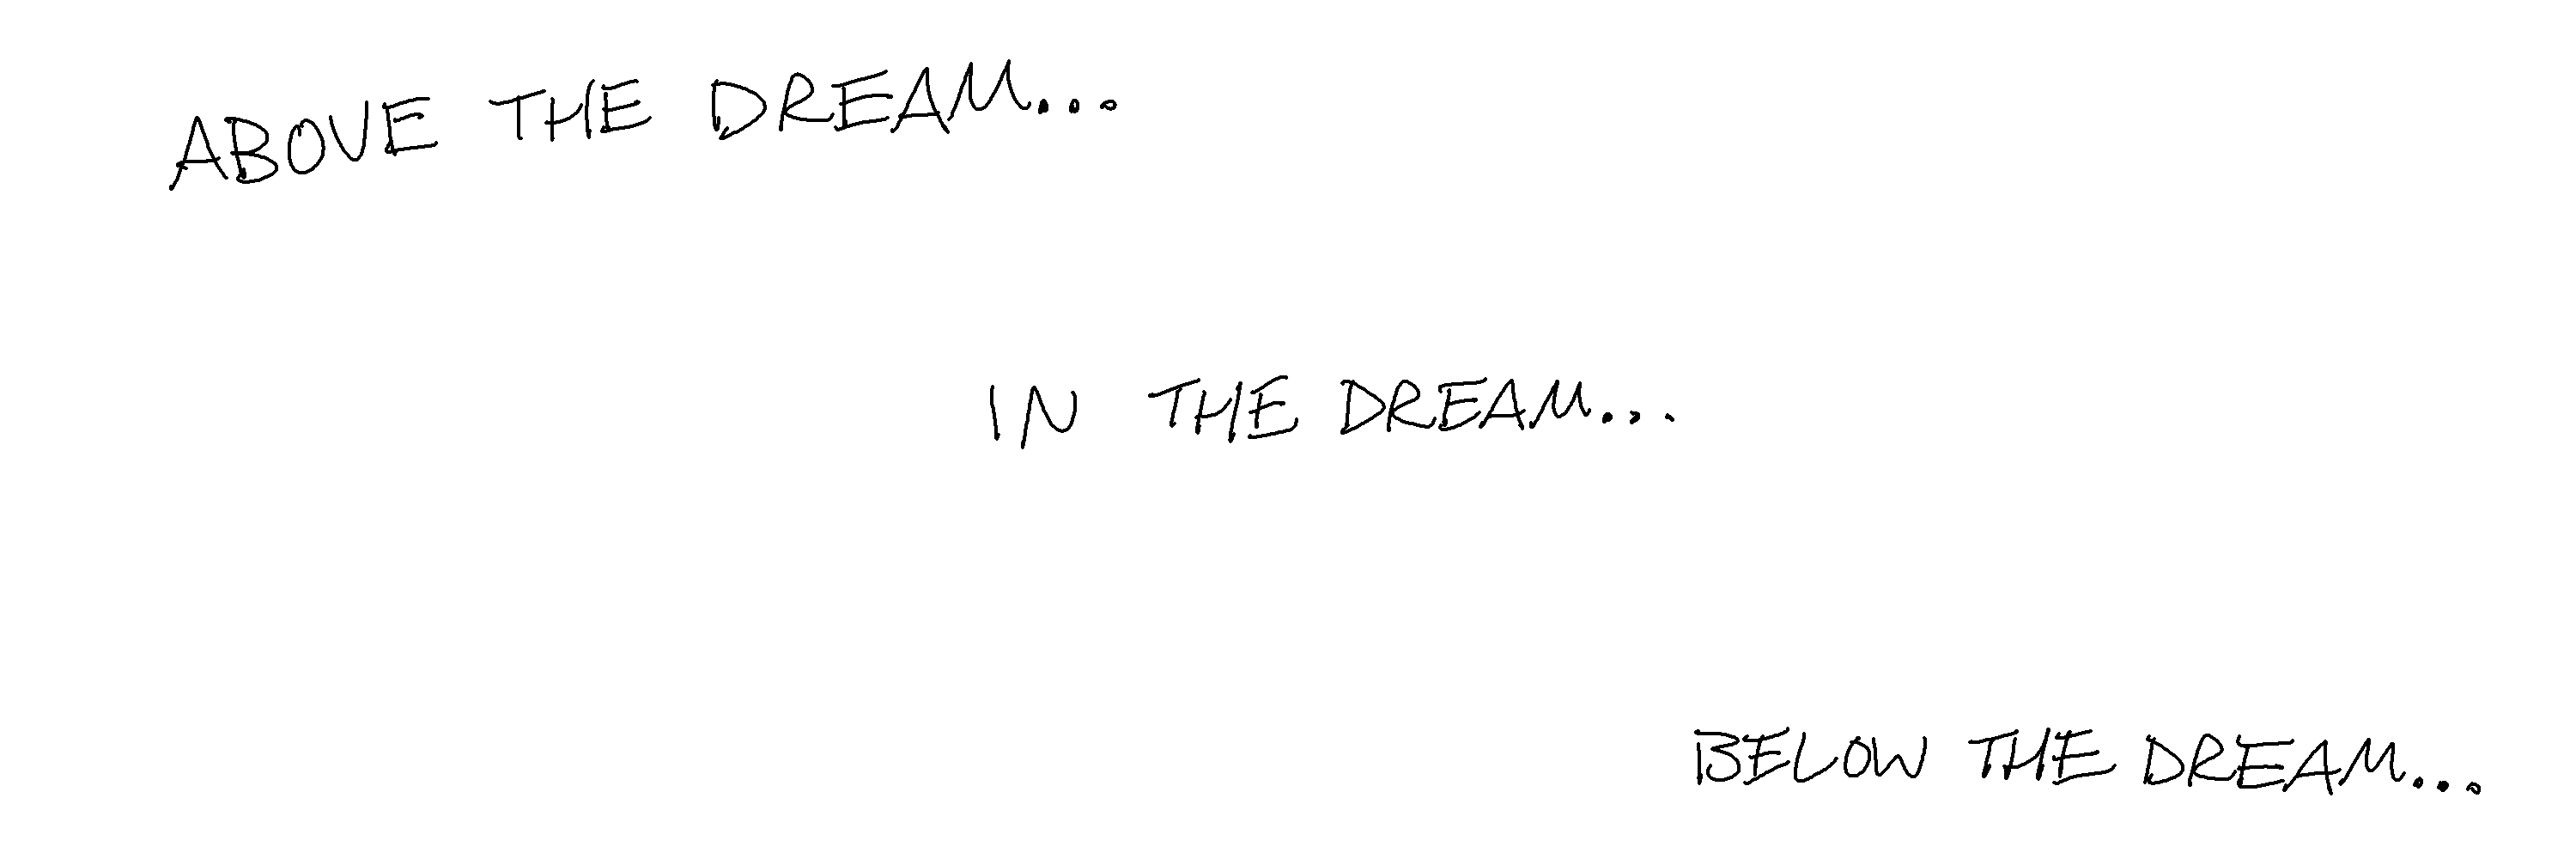 ABOVE THE DREAM...
IN THE DREAM...
BELOW THE DREAM...